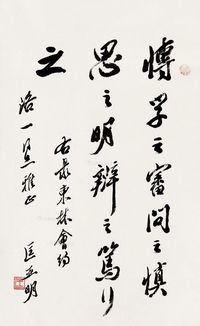 博学之審問之慎
思之明辨之篤行
之
右录東林會约
洛一兄雅正
匡亚明